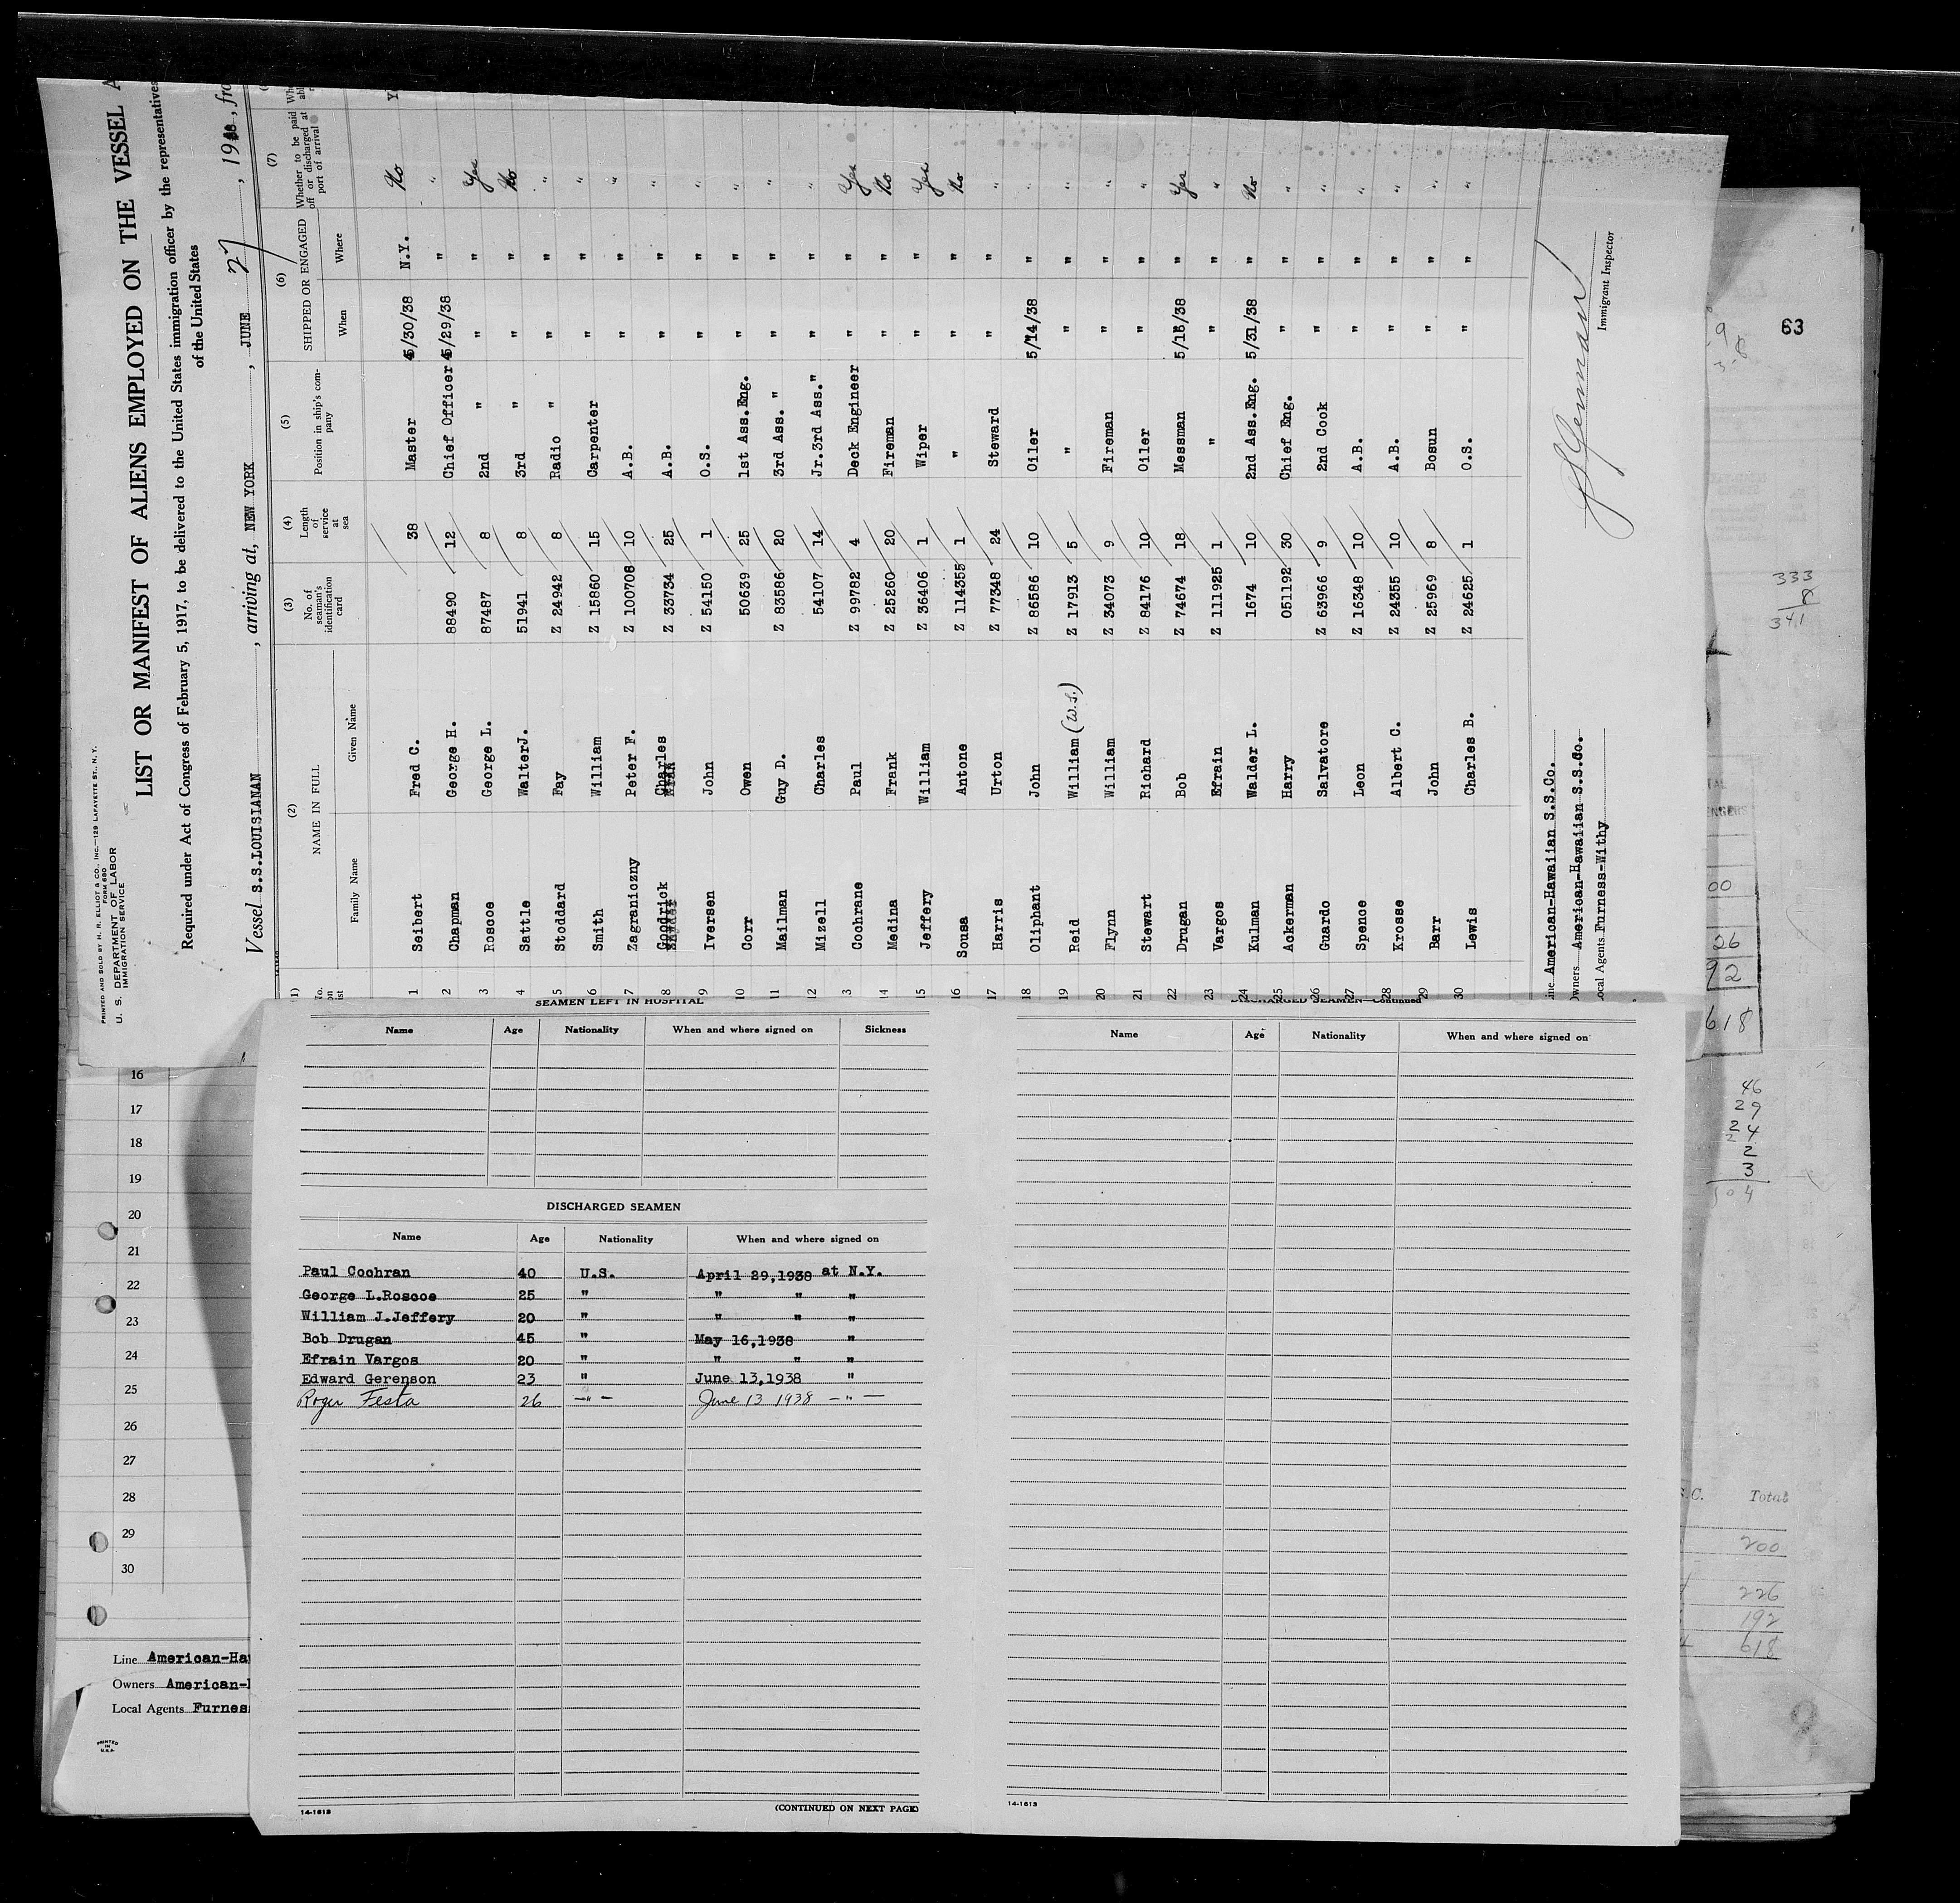 PRINTED AND SOLD BY H. R. ELLIOT & CO., INC.—129 LAFAYETTE ST., N. Y.
FORM 680
U. S. DEPARTMENT OF LABOR
IMMIGRATION SERVICE
LIST OR MANIFEST OF ALIENS EMPLOYED ON THE VESSEL A
Required under Act of Congress of February 5, 1917, to be delivered to the United States immigration officer by the representatives
of the United States
Vessel S.S.LOUISIANAN , arriving at, NEW YORK , JUNE 27 , 1938 , fro
(1) (2) (3) (4) (5) (6) (7)
NAME IN FULL
Family Name Given Name
No. of seaman's identification card
Length of service at sea
Position in ship's company
SHIPPED OR ENGAGED
When Where
Whether to be paid off or discharged at port of arrival
1 Seibert Fred C. 38 Master 5/30/38 N.Y. No
2 Chapman George H. 88490 12 Chief Officer 5/29/38 " "
3 Roscoe George L. 87487 8 2nd " " " Yes
4 Sattle WalterJ. 51941 8 3rd " " " No
5 Stoddard Fay Z 24942 8 Radio " " " "
6 Smith William Z 15860 15 Carpenter " " "
7 Zagraniczny Peter F. Z 100708 10 A.B. " " "
8 Goodrick Charles Z 33734 25 A.B. " " "
9 Iversen John Z 54150 1 O.S. " " "
10 Corr Owen 50639 25 1st Ass.Eng. " " "
11 Mailman Guy D. Z 83586 20 3rd Ass. " " " "
12 Mizell Charles 54107 14 Jr.3rd Ass." " " "
3 Cochrane Paul Z 99782 4 Deck Engineer " " Yes
14 Medina Frank Z 25260 20 Fireman " " No
15 Jeffery William Z 36406 1 Wiper " " Yes
16 Sousa Antone Z 114355 1 " " " No
17 Harris Urton Z 77348 24 Steward " " "
18 Oliphant John Z 86586 10 Oiler 5/14/38 " "
19 Reid William (W.S.) Z 17913 5 " " " "
20 Flynn William Z 34073 9 Fireman " " "
21 Stewart Richard Z 84176 10 Oiler " " "
22 Drugan Bob Z 74674 18 Messman 5/16/38 " Yes
23 Vargos Efrain Z 111925 1 " " " "
24 Kulman Walder L. 1674 10 2nd Ass.Eng. 5/31/38 " No
25 Ackerman Harry 051192 30 Chief Eng. " " "
26 Guardo Salvatore Z 63966 9 2nd Cook " " "
27 Spence Leon Z 16348 10 A.B. " " "
28 Krosse Albert C. Z 24355 10 A.B. " " "
29 Barr John Z 25969 8 Bosun " " "
30 Lewis Charles B. Z 24625 1 O.S. " " "
ine American-Hawaiian S.S.Co.
Owners American-Hawaiian S.S.Co.
ocal Agents Furness-Withy
Immigrant Inspector
SEAMEN LEFT IN HOSPITAL
Name Age Nationality When and where signed on Sickness
DISCHARGED SEAMEN
Name Age Nationality When and where signed on
Paul Cochran 40 U.S. April 29,1938 at N.Y.
George L.Roscoe 25 " " " "
William J.Jeffery 20 " " " "
Bob Drugan 45 " May 16,1938 "
Efrain Vargos 20 " " " "
Edward Gerenson 23 " June 13,1938 "
Roger Festa 26 —"— June 13 1938 —"—
14-1613
(CONTINUED ON NEXT PAGE)
DISCHARGED SEAMEN—Continued
Name Age Nationality When and where signed on
14-1613
16
17
18
19
20
21
22
23
24
25
26
27
28
29
30
Line American-Ha
Owners American-
Local Agents Furnes
PRINTED IN U.S.A.
63
333
8
341
00
26
92
618
46
29
24
2
3
104
Total
200
226
192
618